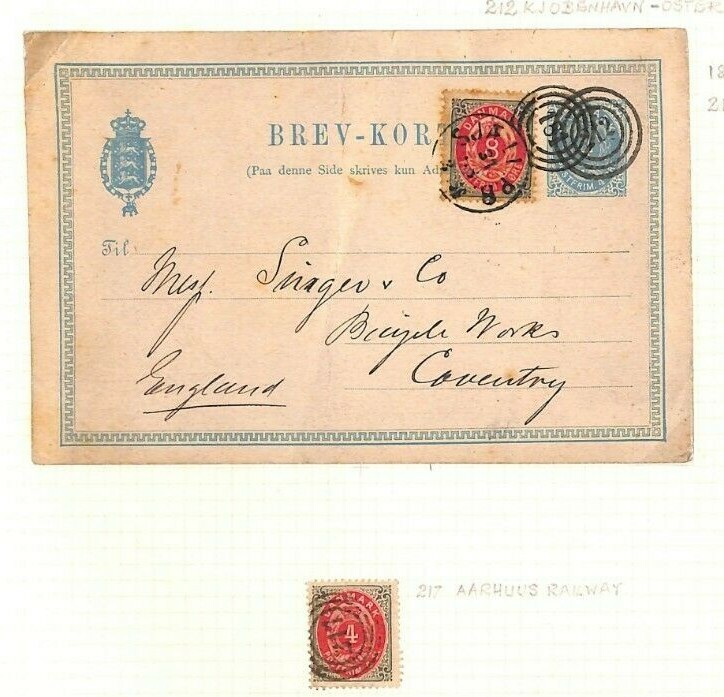 212 KJOBENHAVN - OSTER
BREV-KOR
(Paa denne Side skrives kun Ad
DANMARK
8
Til
Mess. Singer & Co
Bicycle Works
Coventry
England
217 AARHUUS RAILWAY
DANMARK
4